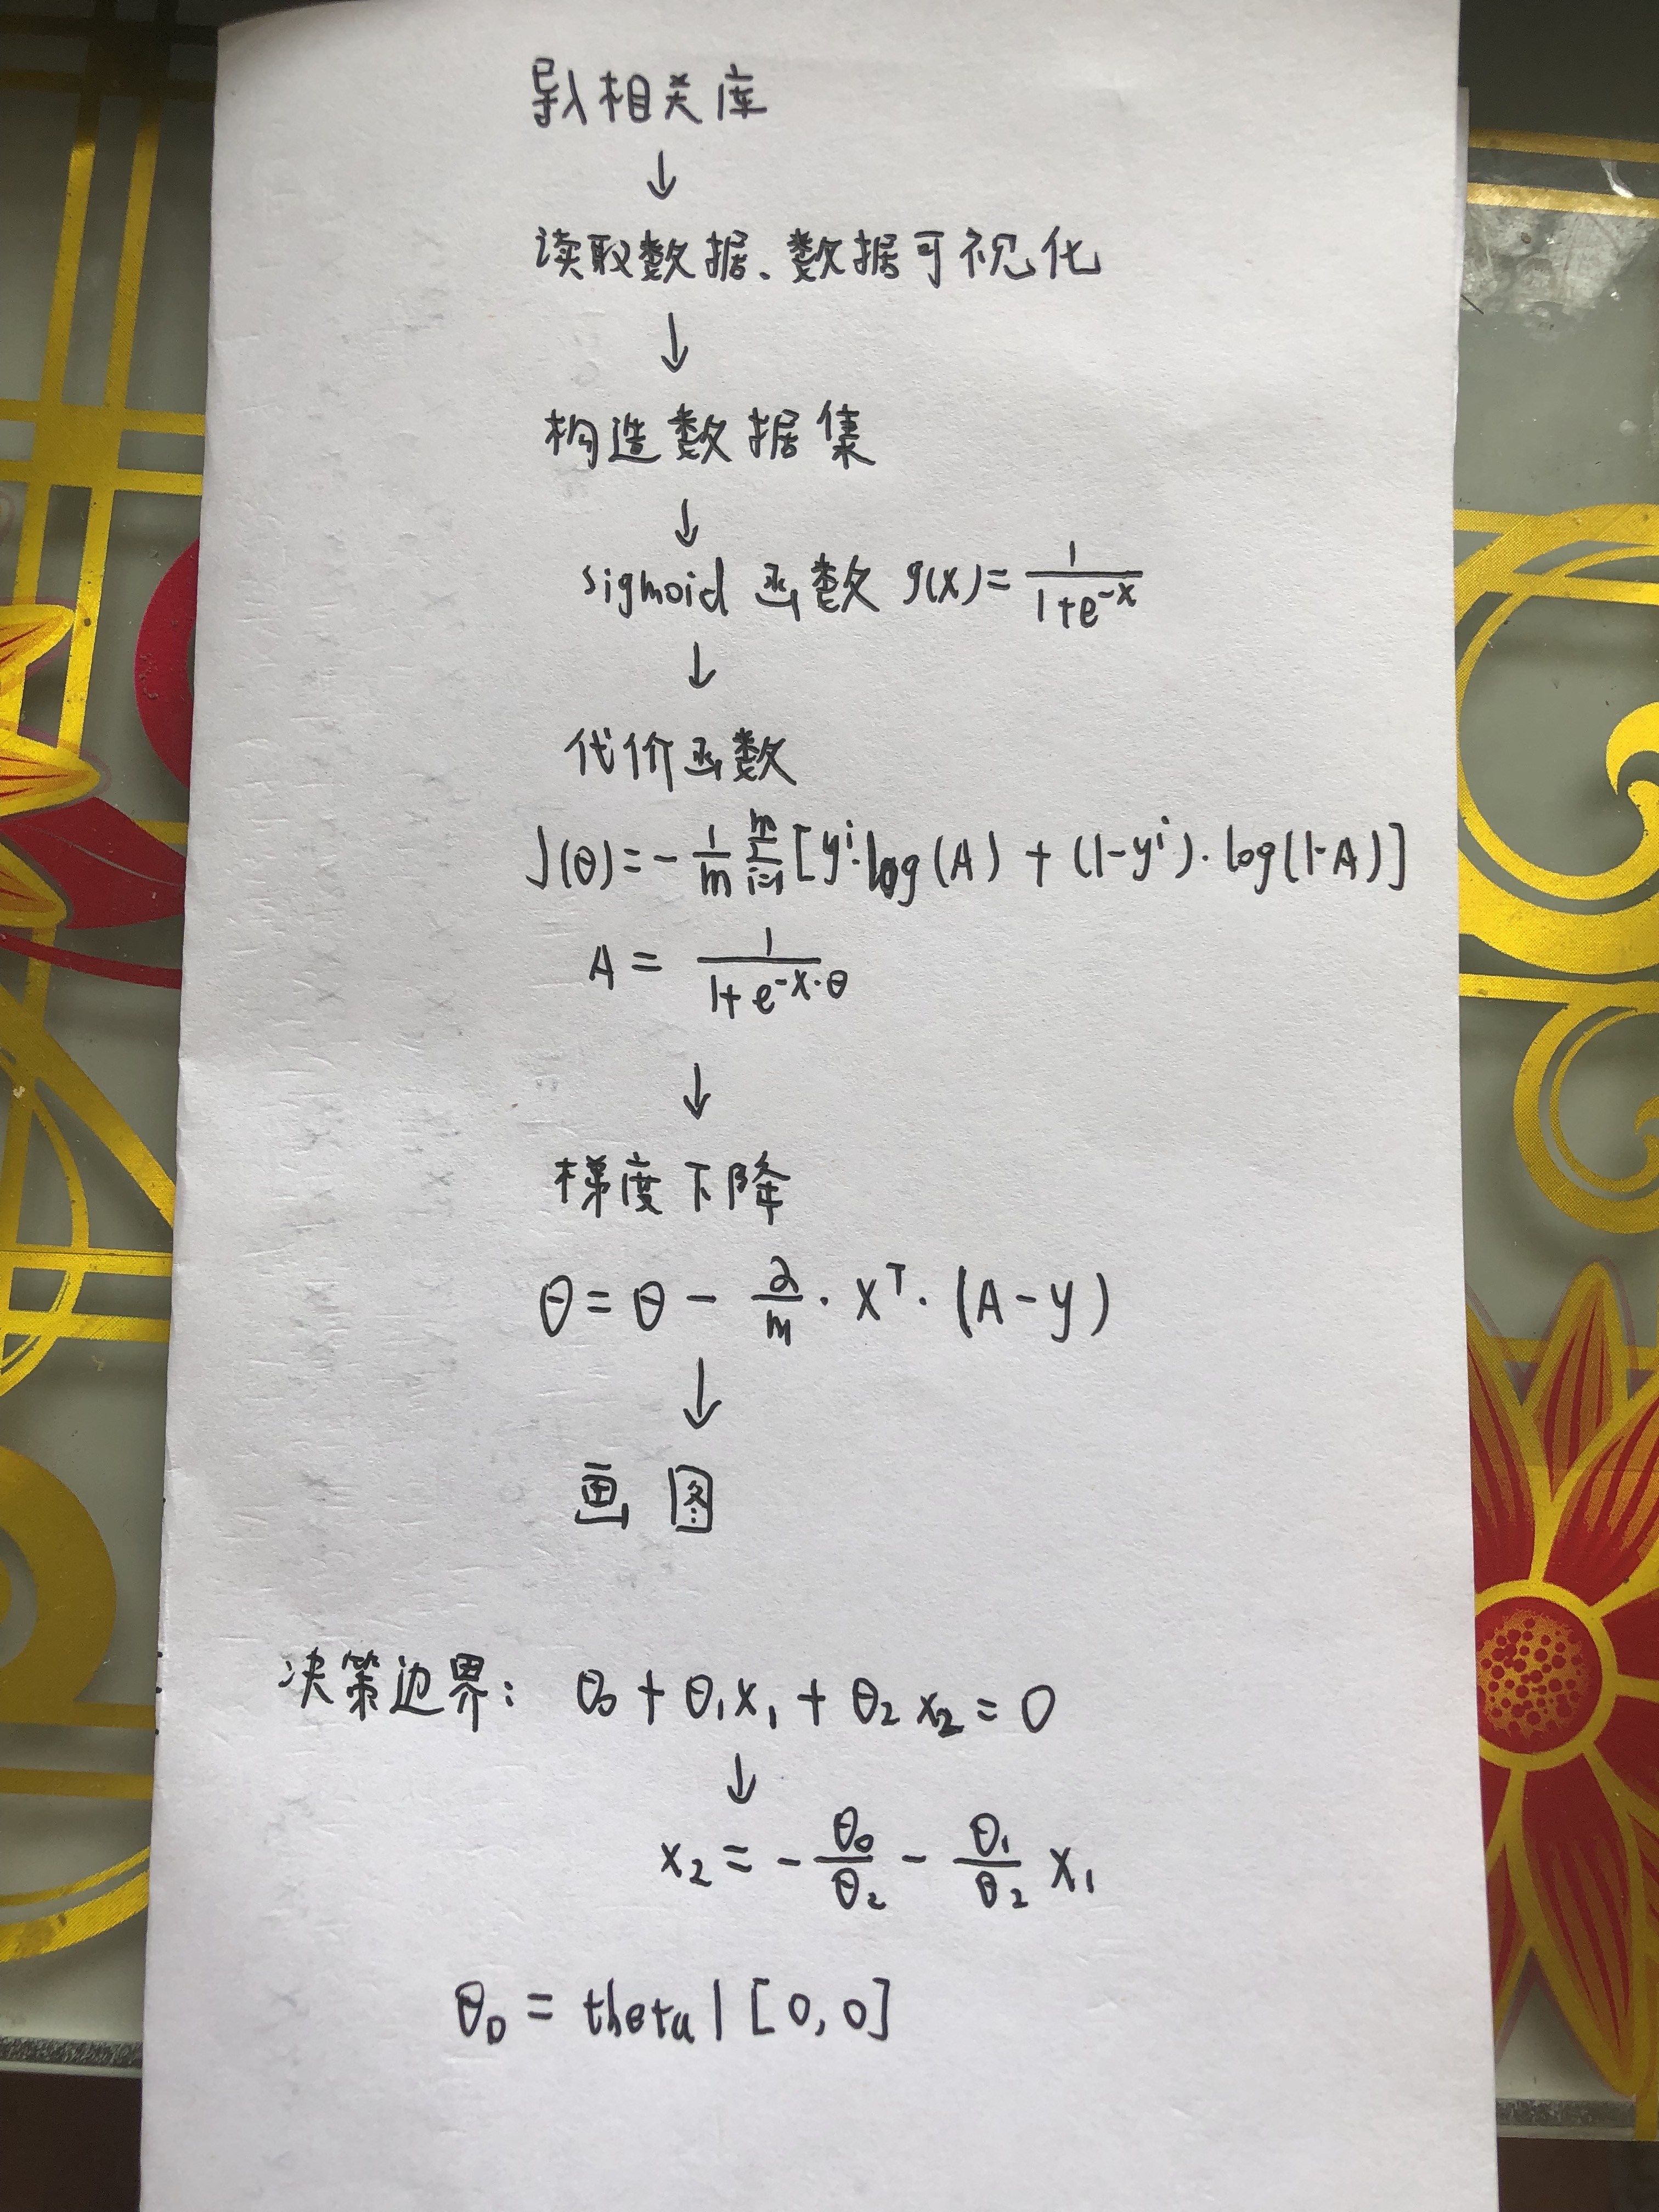 导入相关库
↓
读取数据、数据可视化
↓
构造数据集
↓
sigmoid 函数 g(x)=1/(1+e^-x)
↓
代价函数
J(θ)=-1/m ∑_{i=1}^{m}[y^i·log(A)+(1-y^i)·log(1-A)]
A=1/(1+e^-x·θ)
↓
梯度下降
θ=θ-α/m·X^T·(A-y)
↓
画图
决策边界: θ₀+θ₁x₁+θ₂x₂=0
↓
x₂=-θ₀/θ₂-θ₁/θ₂ x₁
θ₀=theta1[0,0]